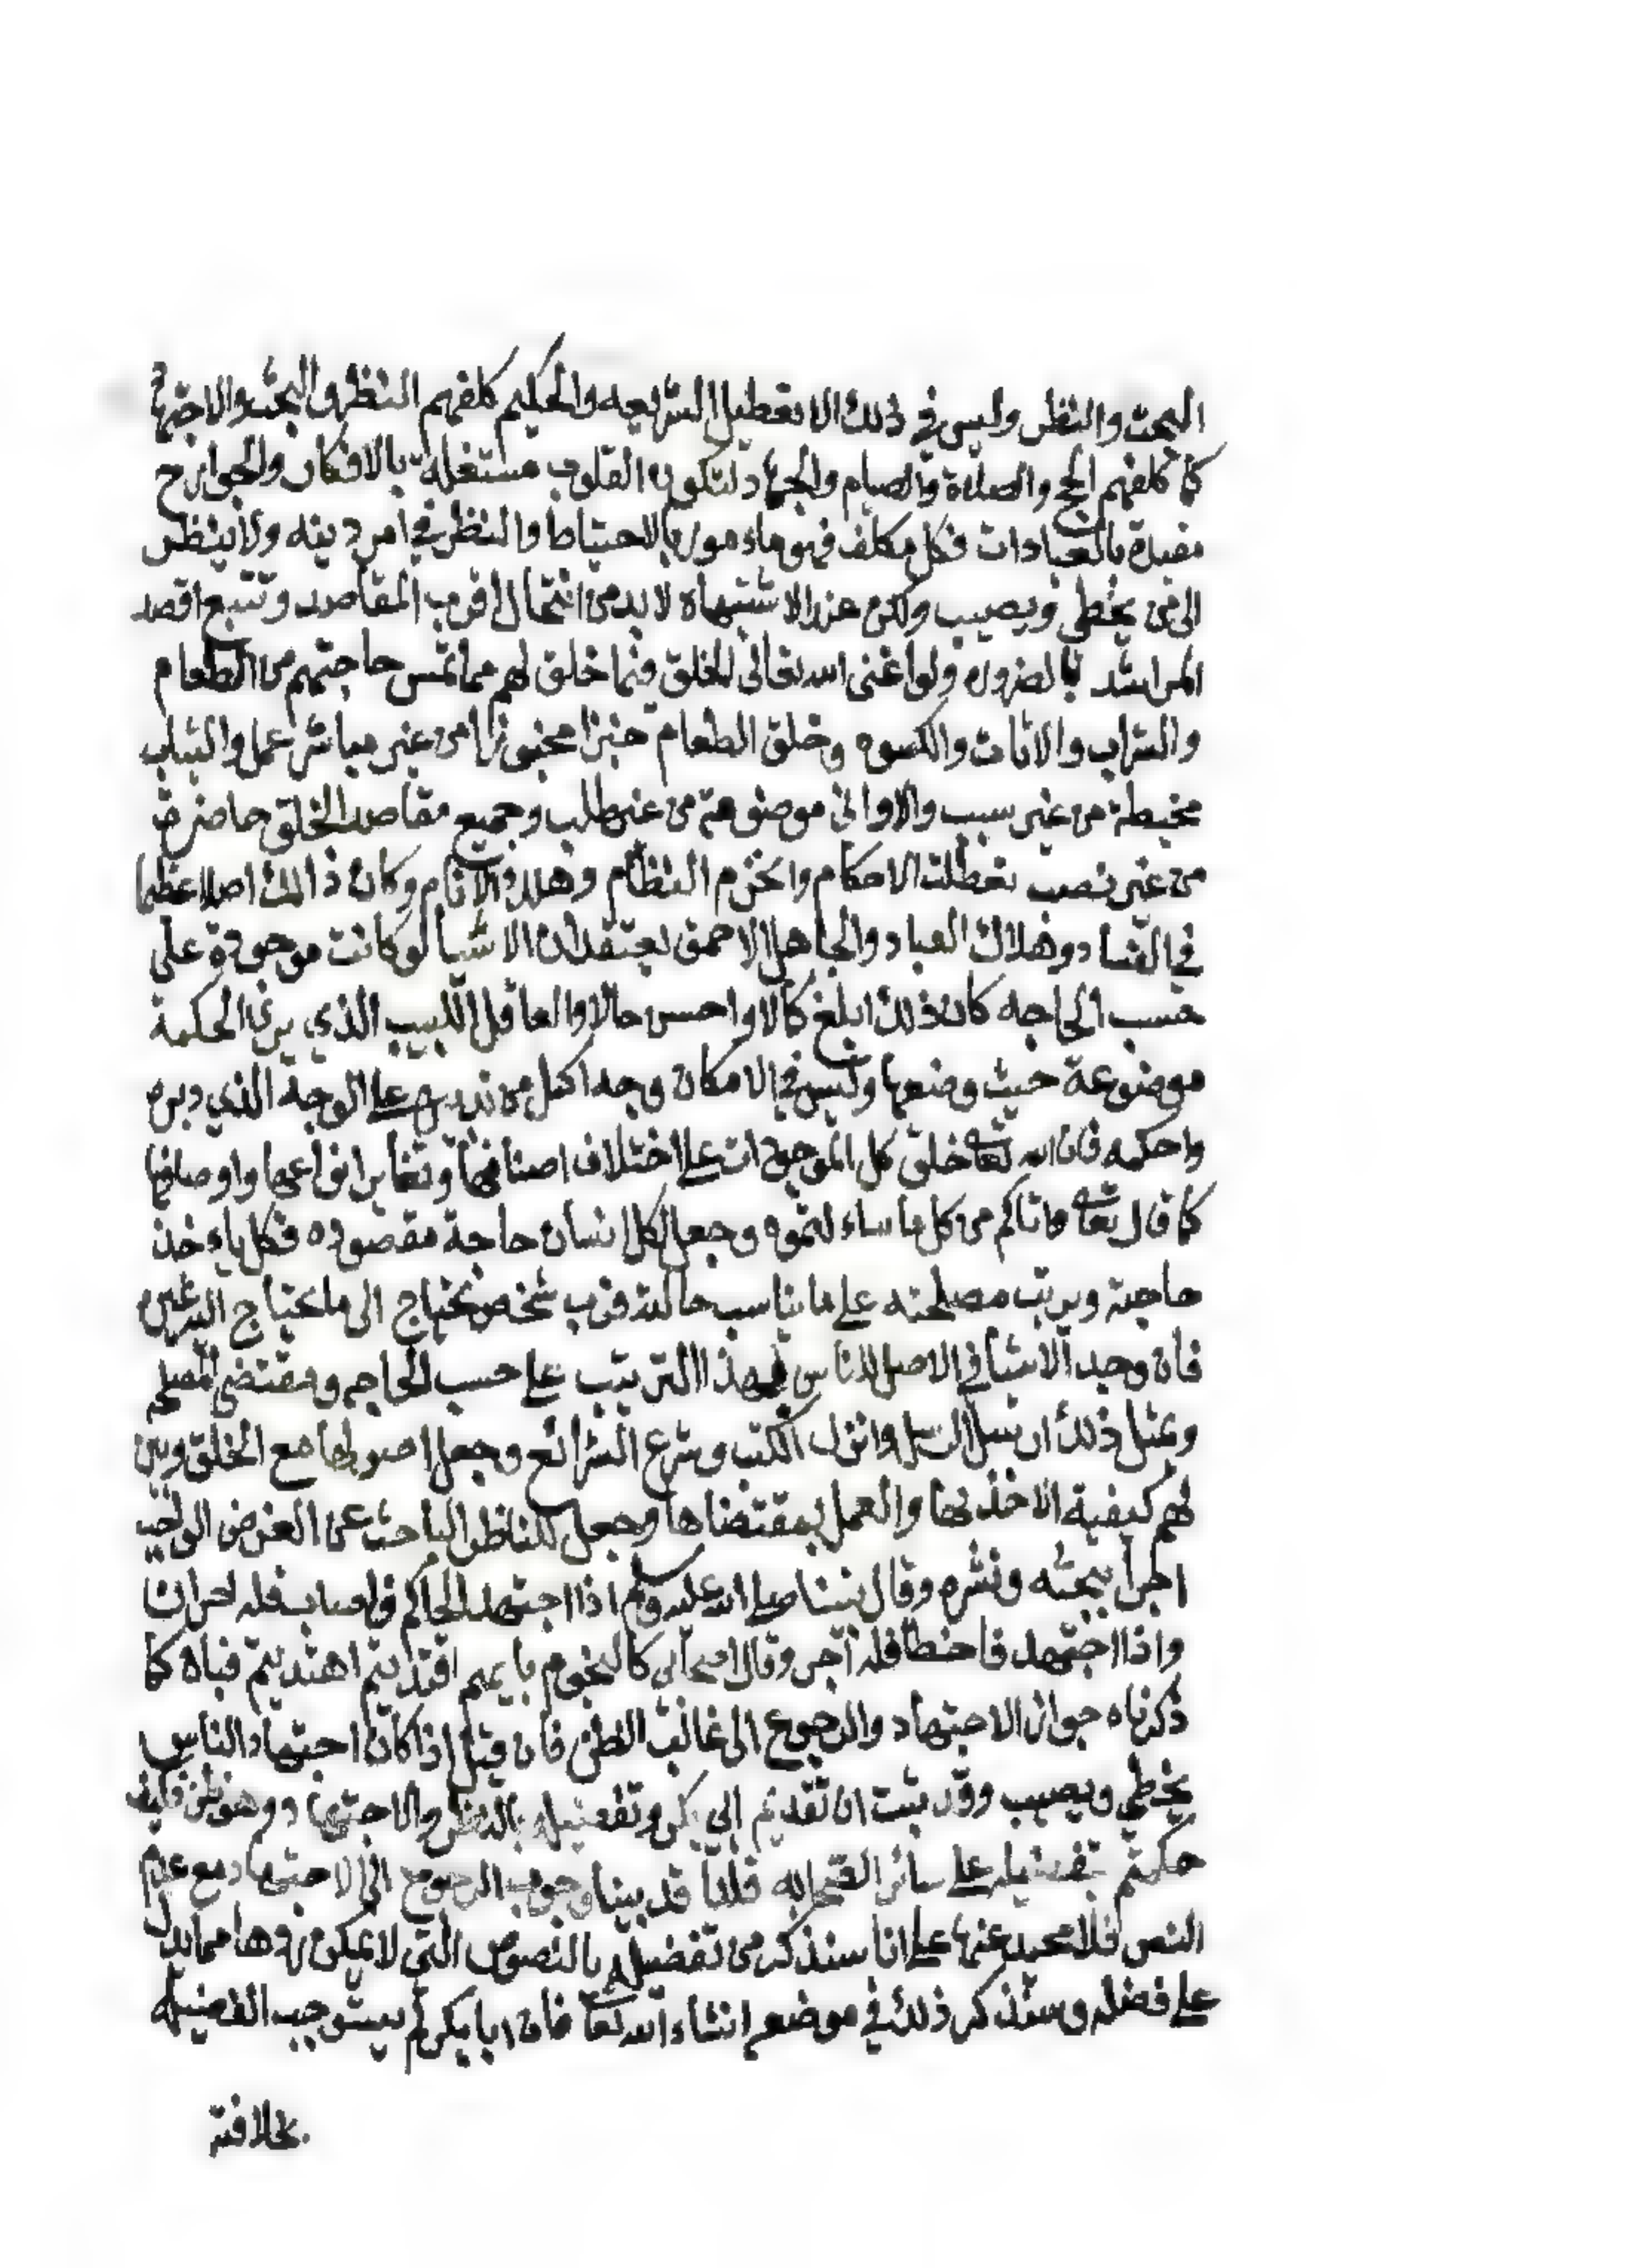 البحث والنظر وليس في ذلك الا تعطيل الشريعه والحكيم كلفهم النظر والبحث والاجتهاد
كما كلفهم الحج والصلاة والصيام والجهاد لتكون القلوب مشتغلة بالافكار والجوارح
مقيدة بالعبادات فكل مكلف فهو ماءمور بالاحتياط والنظر في امر دينه ولا ينظر
الى من يخطي ويصيب ولكن عند الاشتباه لا بد من انتحال اقرب المقاصد وتتبع اقصد
المراشد بالضروره ولو اغنى الله تعالى الخلق فيما خلق لهم مما تمس حاجتهم من الطعام
والشراب والاثاث والكسوه وخلق الطعام خبزا مخبوزا من غير مباشر عمل والثياب
مخيطة من غير سبب والاواني موضوعة من غير طلب وجميع مقاصد الخلق حاضرة
من غير نصب تعطلت الاحكام وانخرم النظام وهلك الانام وكان ذالك اصلا عظيما
في الفساد وهلاك العباد والجاهل الاحمق يعتقد ان الاشيا لو كانت موجودة على
حسب الحاجه كان ذلك ابلغ كمالا واحسن حالا والعاقل اللبيب الذي يرى الحكمة
موضوعة حيث وضعها وليس في الامكان وجه اكمل من تدبيره على الوجه الذي دبره
واحكمه فان الله تعالى خلق كل الموجودات على اختلاف اصنافها وتغاير انواعها واوصافها
كما قال تعالى واتاكم من كل ما ساءلتموه وجعل لكل انسان حاجة مقصوده فكل ياءخذ
حاجته ويرتب مصلحته على ما يناسب حالته فرب شخص يحتاج الى ما يحتاج اليه غيره
فان وجد الاشيا في الاصل للناس فهذا الترتيب على حسب الحاجه ومقتضى المصلحه
وبمثل ذلك ارسل الرسل وانزل الكتب وشرع الشرائع وجعل اصولها مع الخلق وبين
لهم كيفية الاخذ بها والعمل بمقتضاها وجعل للناظر الباحث عن الغرض الواجب
اجرا ببحثه ونشره وقال نبينا صلى الله عليه وسلم اذا اجتهد الحاكم فاصاب فله اجران
واذا اجتهد فاخطا فله اجر وقال اصحابي كالنجوم بايهم اقتديتم اهتديتم فباه كما
ذكرناه جواز الاجتهاد والرجوع الى غالب الظن فان قيل اذا كان اجتهاد الناس
يخطي ويصيب وقد ثبت ان تقديم ابي بكر وتفضيله بالنظر والاجتهاد وهو ظن فكيف
حكمتم بتفضيله على سائر الصحابه قلنا قد بينا وجوب الرجوع الى الاجتهاد مع عدم
النص فلا محيد عنها على انا سنذكر من تفضيله بالنصوص التي لا يمكن ردها مما يدل
على فضله وسنذكر ذلك في موضعه انشاء الله تعالى فان ابا بكر لم يستوجب الفضيله
بخلافته